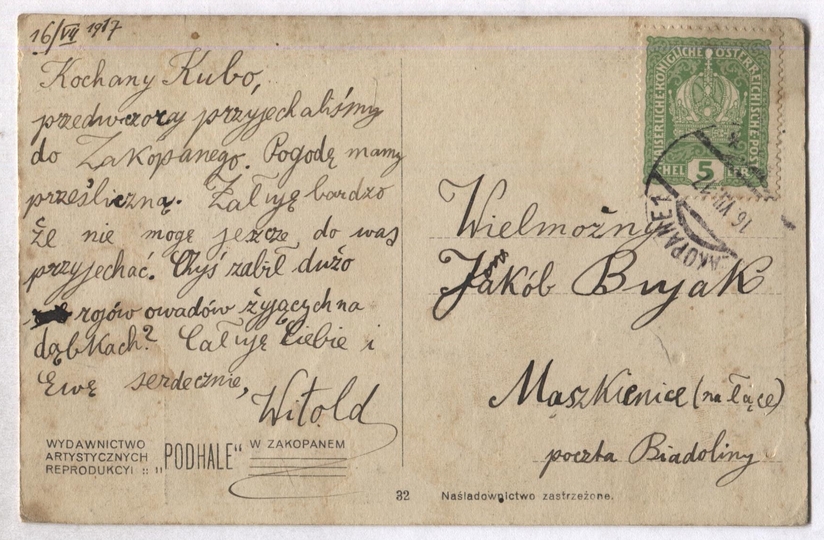 16/VII 1917
Kochany Kubo,
przedwczoraj przyjechaliśmy
do Zakopanego. Pogodę mamy
prześliczną. Żałuję bardzo
że nie mogę jeszcze do was
przyjechać. Czyś zabił dużo
rojów owadów żyjących na
dąbkach? Całuję Ciebie i
Ewę serdecznie,
Witold
WYDAWNICTWO
ARTYSTYCZNYCH
REPRODUKCYI :: „PODHALE“ W ZAKOPANEM
KAISERLICHE KÖNIGLICHE ÖSTERREICHISCHE POST
5
ZAKOPANE 1
16 VII 17
Wielmożny
Jakób Bujak
Maszkienice (na łące)
poczta Biadoliny
32 Naśladownictwo zastrzeżone.